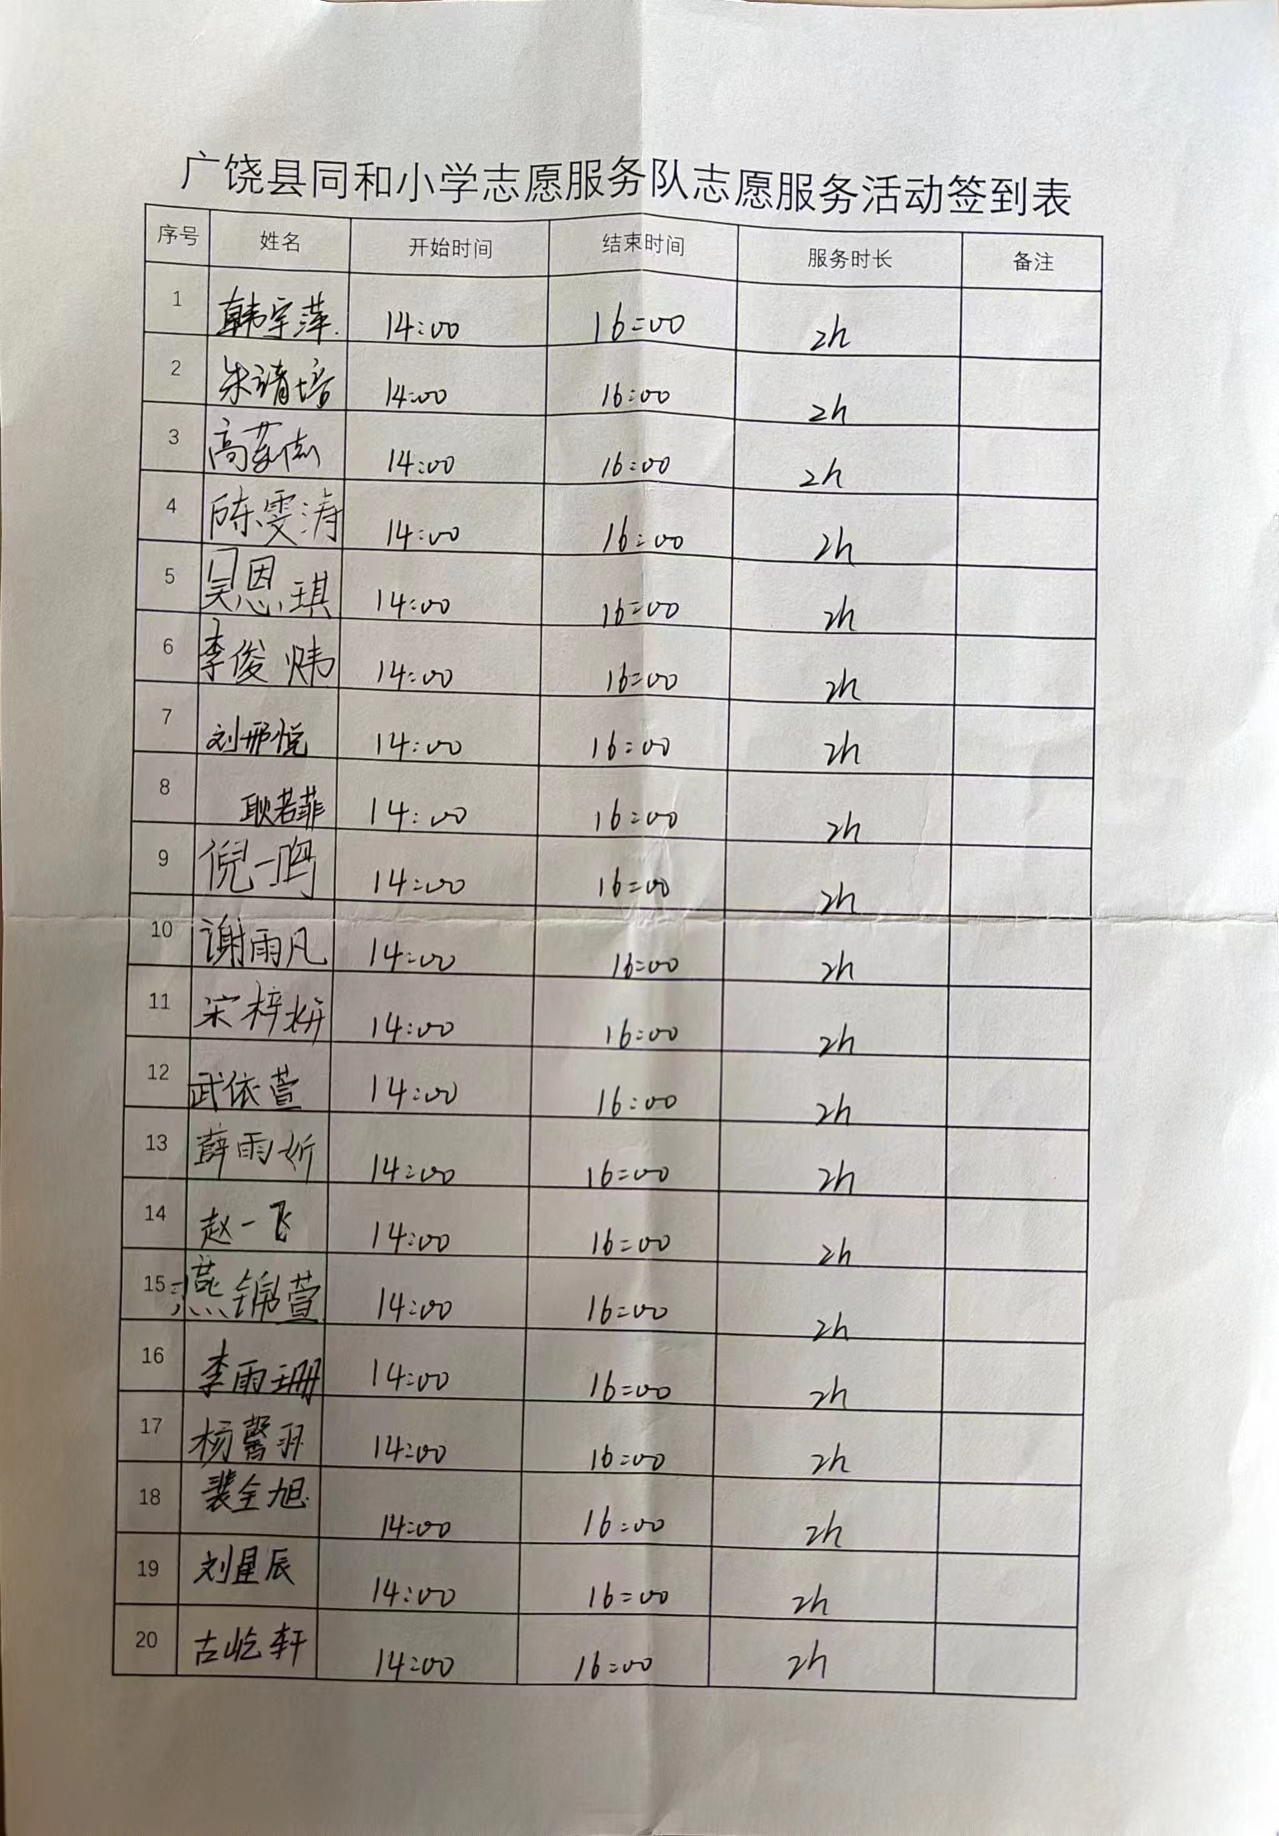 广饶县同和小学志愿服务队志愿服务活动签到表
序号 姓名 开始时间 结束时间 服务时长 备注
1 韩宇萍 14:00 16:00 2h
2 朱靖培 14:00 16:00 2h
3 高 14:00 16:00 2h
4 陈雯涛 14:00 16:00 2h
5 吴恩琪 14:00 16:00 2h
6 李俊炜 14:00 16:00 2h
7 刘邢悦 14:00 16:00 2h
8 耿若菲 14:00 16:00 2h
9 倪一鸣 14:00 16:00 2h
10 谢雨凡 14:00 16:00 2h
11 宋梓妍 14:00 16:00 2h
12 武依萱 14:00 16:00 2h
13 薛雨妡 14:00 16:00 2h
14 赵一飞 14:00 16:00 2h
15 燕锦萱 14:00 16:00 2h
16 李雨珊 14:00 16:00 2h
17 杨馨羽 14:00 16:00 2h
18 裴全旭 14:00 16:00 2h
19 刘星辰 14:00 16:00 2h
20 古屹轩 14:00 16:00 2h